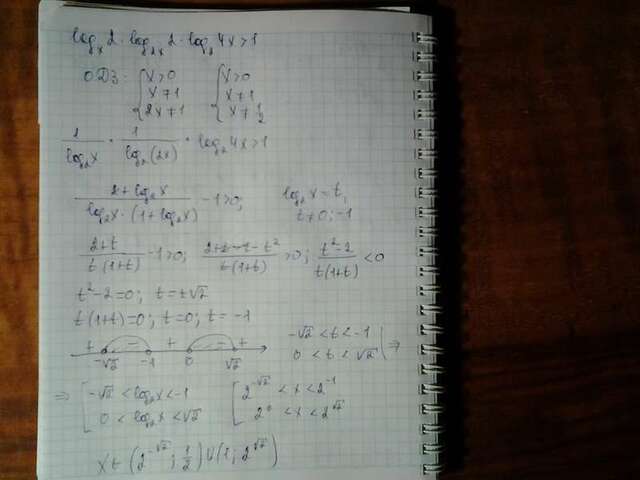 logₓ2 · log₂ₓ2 · log₂4x>1
ОДЗ: {x>0 {x>0
x≠1 x≠1
2x≠1 x≠1/2
1/log₂x · 1/log₂(2x) · log₂4x>1
(2+log₂x)/(log₂x·(1+log₂x)) -1>0; log₂x=t,
t≠0;-1
(2+t)/(t(1+t)) -1>0; (2+t-t-t²)/(t(1+t)) >0; (t²-2)/(t(1+t)) <0
t²-2=0; t=±√2
t(1+t)=0; t=0; t=-1
+ - + - +
-√2 -1 0 √2
-√2<t<-1
0<t<√2 ⇒
⇒ [-√2<log₂x<-1 [2^(-√2)<x<2^(-1)
0<log₂x<√2 2^0<x<2^(√2)
x∈(2^(-√2); 1/2)∪(1; 2^(√2))